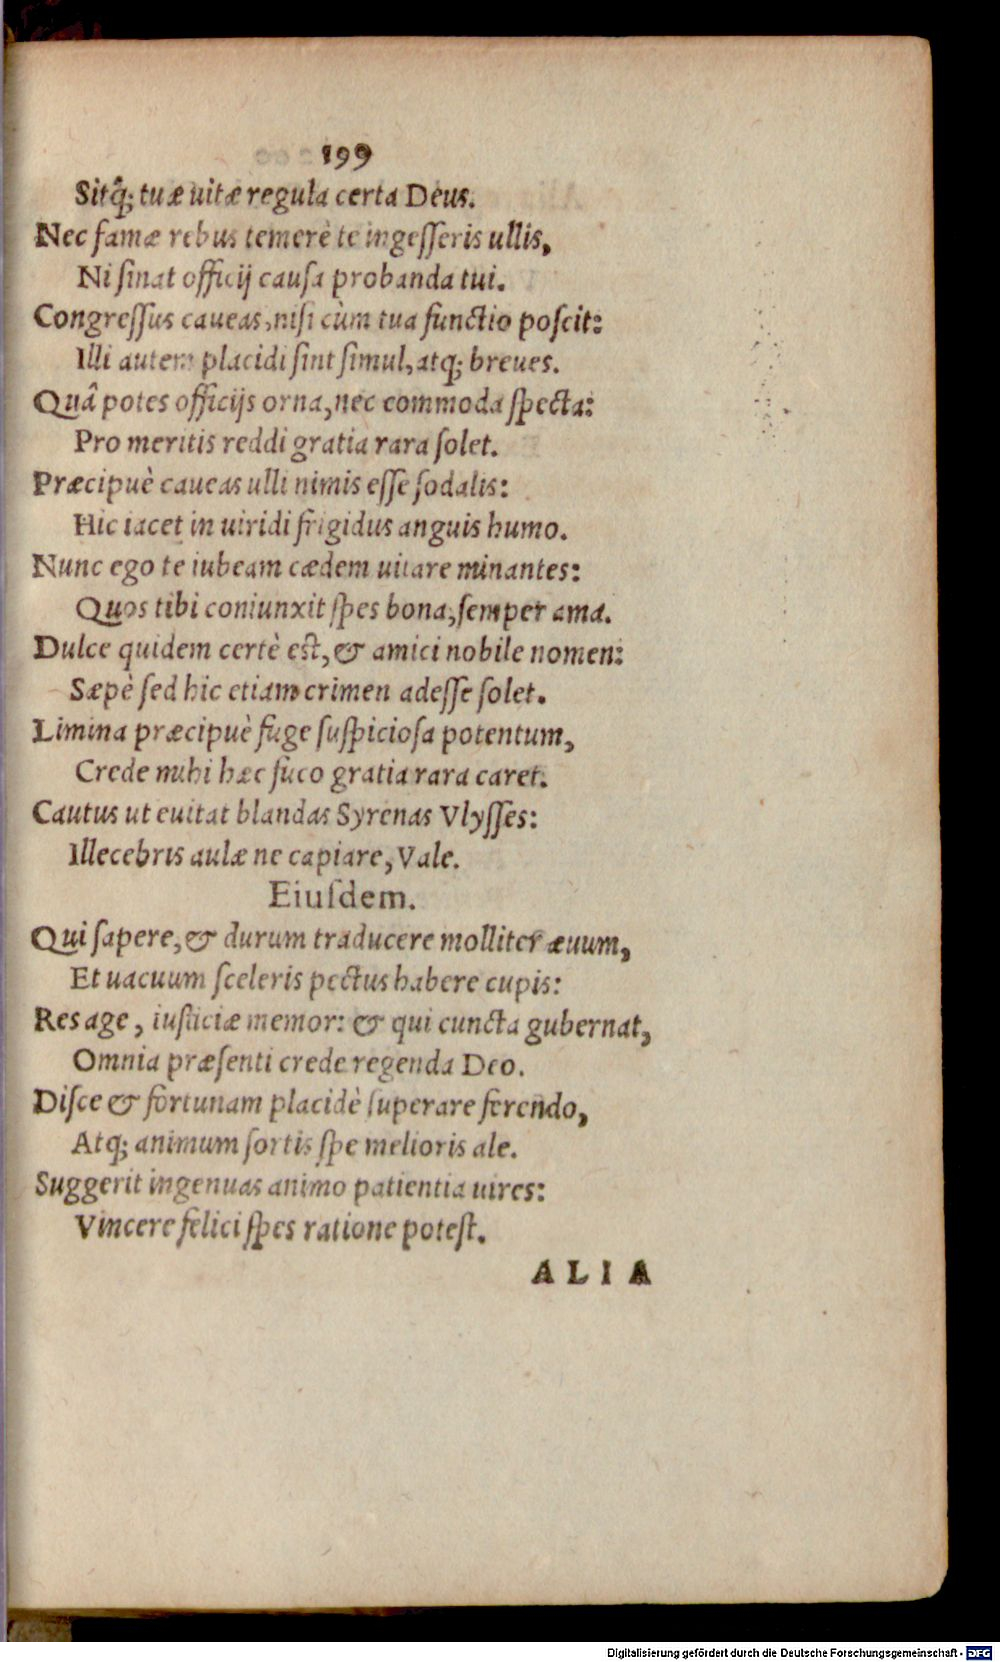 199
Sitq́; tuæ uitæ regula certa Deus.
Nec famæ rebus temerè te ingeſſeris ullis,
Ni ſinat officij cauſa probanda tui.
Congreſſus caueas, niſi cùm tua functio poſcit:
Illi autem placidi ſint ſimul, atq; breues.
Quâ potes officijs orna, nec commoda ſpecta:
Pro meritis reddi gratia rara ſolet.
Præcipuè caueas ulli nimis eſſe ſodalis:
Hic iacet in uiridi frigidus anguis humo.
Nunc ego te iubeam cædem uitare minantes:
Quos tibi coniunxit ſpes bona, ſemper ama.
Dulce quidem certè eſt, & amici nobile nomen:
Sæpè ſed hic etiam crimen adeſſe ſolet.
Limina præcipuè fuge ſuſpicioſa potentum,
Crede mihi hæc fuco gratia rara caret.
Cautus ut euitat blandas Syrenas Vlyſſes:
Illecebris aulæ ne capiare, Vale.
Eiuſdem.
Qui ſapere, & durum traducere molliter æuum,
Et uacuum ſceleris pectus habere cupis:
Res age, iuſticiæ memor: & qui cuncta gubernat,
Omnia præſenti crede regenda Deo.
Diſce & fortunam placidè ſuperare ferendo,
Atq; animum ſortis ſpe melioris ale.
Suggerit ingenuas animo patientia uires:
Vincere felici ſpes ratione poteſt.
ALIA
Digitalisierung gefördert durch die Deutsche Forschungsgemeinschaft - DFG